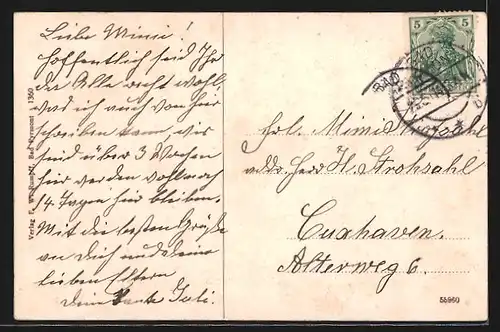 Liebe Mimi!
Hoffentlich seid Ihr
da Alle recht wohl,
was ich auch von hier
schreiben kann, wir
sind über 3 Wochen
hier werden vollnoch
14 Tagen hier bleiben.
Mit die besten Grüße
an Dich und deine
lieben Eltern
Deine Tante Juli.
Verlag F. W. Bad Pyrmont 1360
5 5
BAD
Frl. Mimi Strohsahl
adr. Herr H. Strohsahl
Cuxhaven.
Alterweg 6.
55960